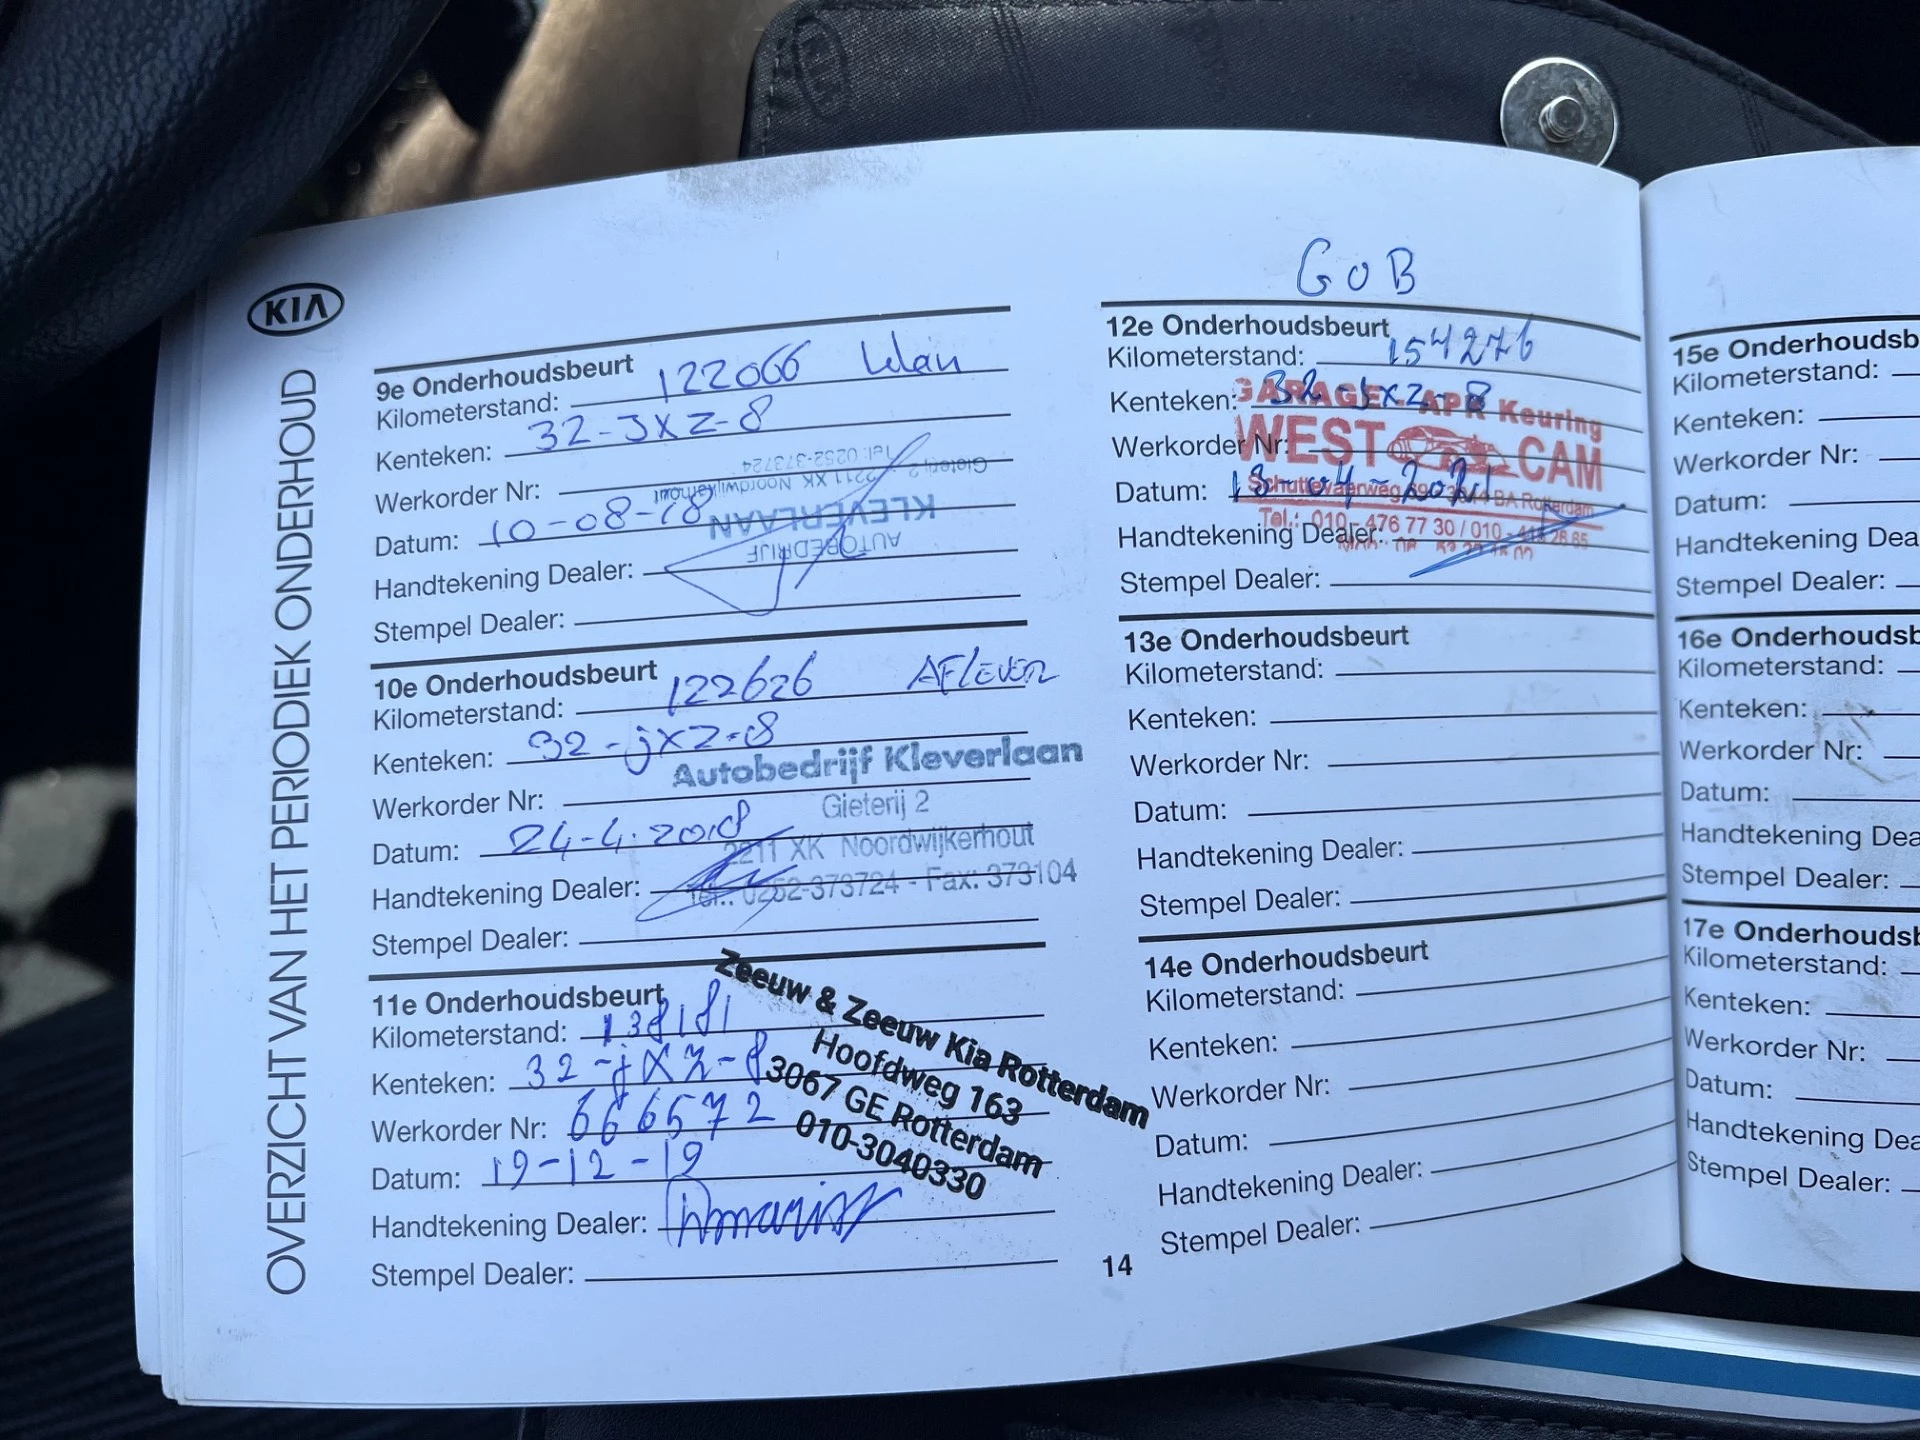 KIA
OVERZICHT VAN HET PERIODIEK ONDERHOUD
9e Onderhoudsbeurt
Kilometerstand: 122066
Kenteken: 32-JXZ-8
Werkorder Nr:
Datum: 10-08-18
Handtekening Dealer:
Stempel Dealer:
AUTOBEDRIJF
KLEVERLAAN
Gieterij 2
2211 XK Noordwijkerhout
Tel: 0252-373724
10e Onderhoudsbeurt
Kilometerstand: 122626 AFLEVER
Kenteken: 32-jxz-8
Werkorder Nr:
Datum: 24-4-2018
Handtekening Dealer:
Stempel Dealer:
Autobedrijf Kleverlaan
Gieterij 2
2211 XK Noordwijkerhout
Tel.: 0252-373724 - Fax: 373104
11e Onderhoudsbeurt
Kilometerstand: 138181
Kenteken: 32-jXZ-8
Werkorder Nr: 666572
Datum: 19-12-19
Handtekening Dealer:
Stempel Dealer:
Zeeuw & Zeeuw Kia Rotterdam
Hoofdweg 163
3067 GE Rotterdam
010-3040330
GOB
12e Onderhoudsbeurt
Kilometerstand: 154276
Kenteken: 32-JXZ-8
Werkorder Nr:
Datum: 18-04-2021
Handtekening Dealer:
Stempel Dealer:
GARAGE - APK Keuring
WEST CAM
BA Rotterdam
Tel.: 010 - 476 77 30 / 010 -
13e Onderhoudsbeurt
Kilometerstand:
Kenteken:
Werkorder Nr:
Datum:
Handtekening Dealer:
Stempel Dealer:
14e Onderhoudsbeurt
Kilometerstand:
Kenteken:
Werkorder Nr:
Datum:
Handtekening Dealer:
Stempel Dealer:
14
15e Onderhoudsb
Kilometerstand:
Kenteken:
Werkorder Nr:
Datum:
Handtekening Dea
Stempel Dealer:
16e Onderhoudsb
Kilometerstand:
Kenteken:
Werkorder Nr:
Datum:
Handtekening Dea
Stempel Dealer:
17e Onderhoudsb
Kilometerstand:
Kenteken:
Werkorder Nr:
Datum:
Handtekening Dea
Stempel Dealer: